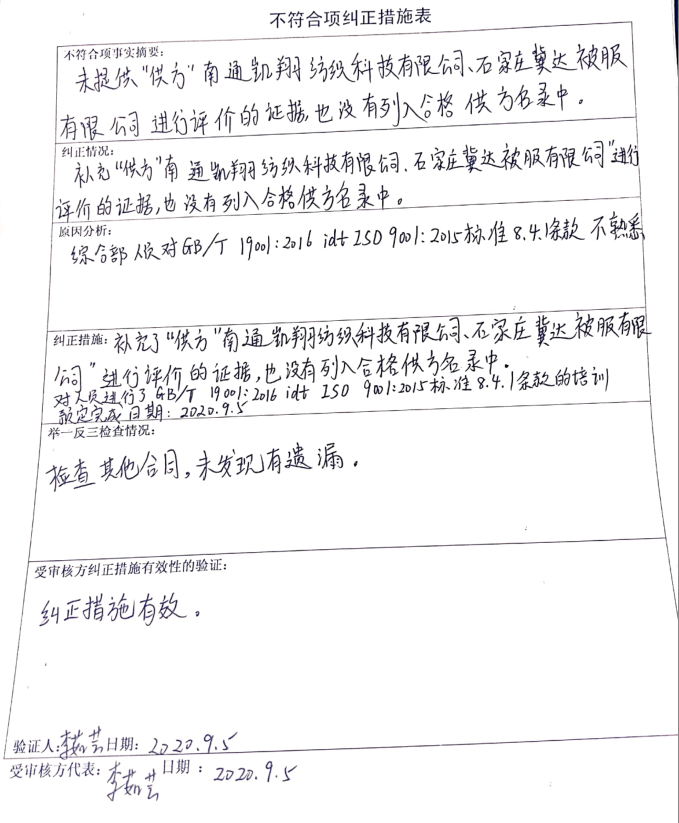 不符合项纠正措施表
不符合项事实摘要:
未提供“供方”南通凯翔纺织科技有限公司、石家庄冀达被服
有限公司进行评价的证据,也没有列入合格供方名录中。
纠正情况:
补充“供方”南通凯翔纺织科技有限公司、石家庄冀达被服有限公司”进行
评价的证据,也没有列入合格供方名录中。
原因分析:
综合部人员对GB/T 19001:2016 idt ISO 9001:2015标准8.4.1条款 不熟悉
纠正措施: 补充了“供方”南通凯翔纺织科技有限公司、石家庄冀达被服有限
公司”进行评价的证据,也没有列入合格供方名录中。
对人员进行了GB/T 19001:2016 idt ISO 9001:2015标准8.4.1条款的培训
预定完成日期: 2020.9.5
举一反三检查情况:
检查其他合同,未发现有遗漏。
受审核方纠正措施有效性的验证:
纠正措施有效。
验证人:李茹芸日期: 2020.9.5
受审核方代表: 李茹芸 日期: 2020.9.5